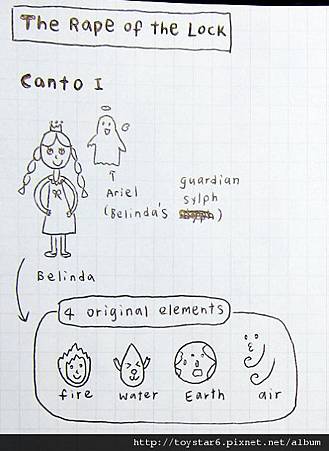 The Rape of the Lock
Canto I
Ariel
(Belinda's guardian sylph)
Belinda
4 original elements
fire water Earth air
http://toystar6.pixnet.net/album